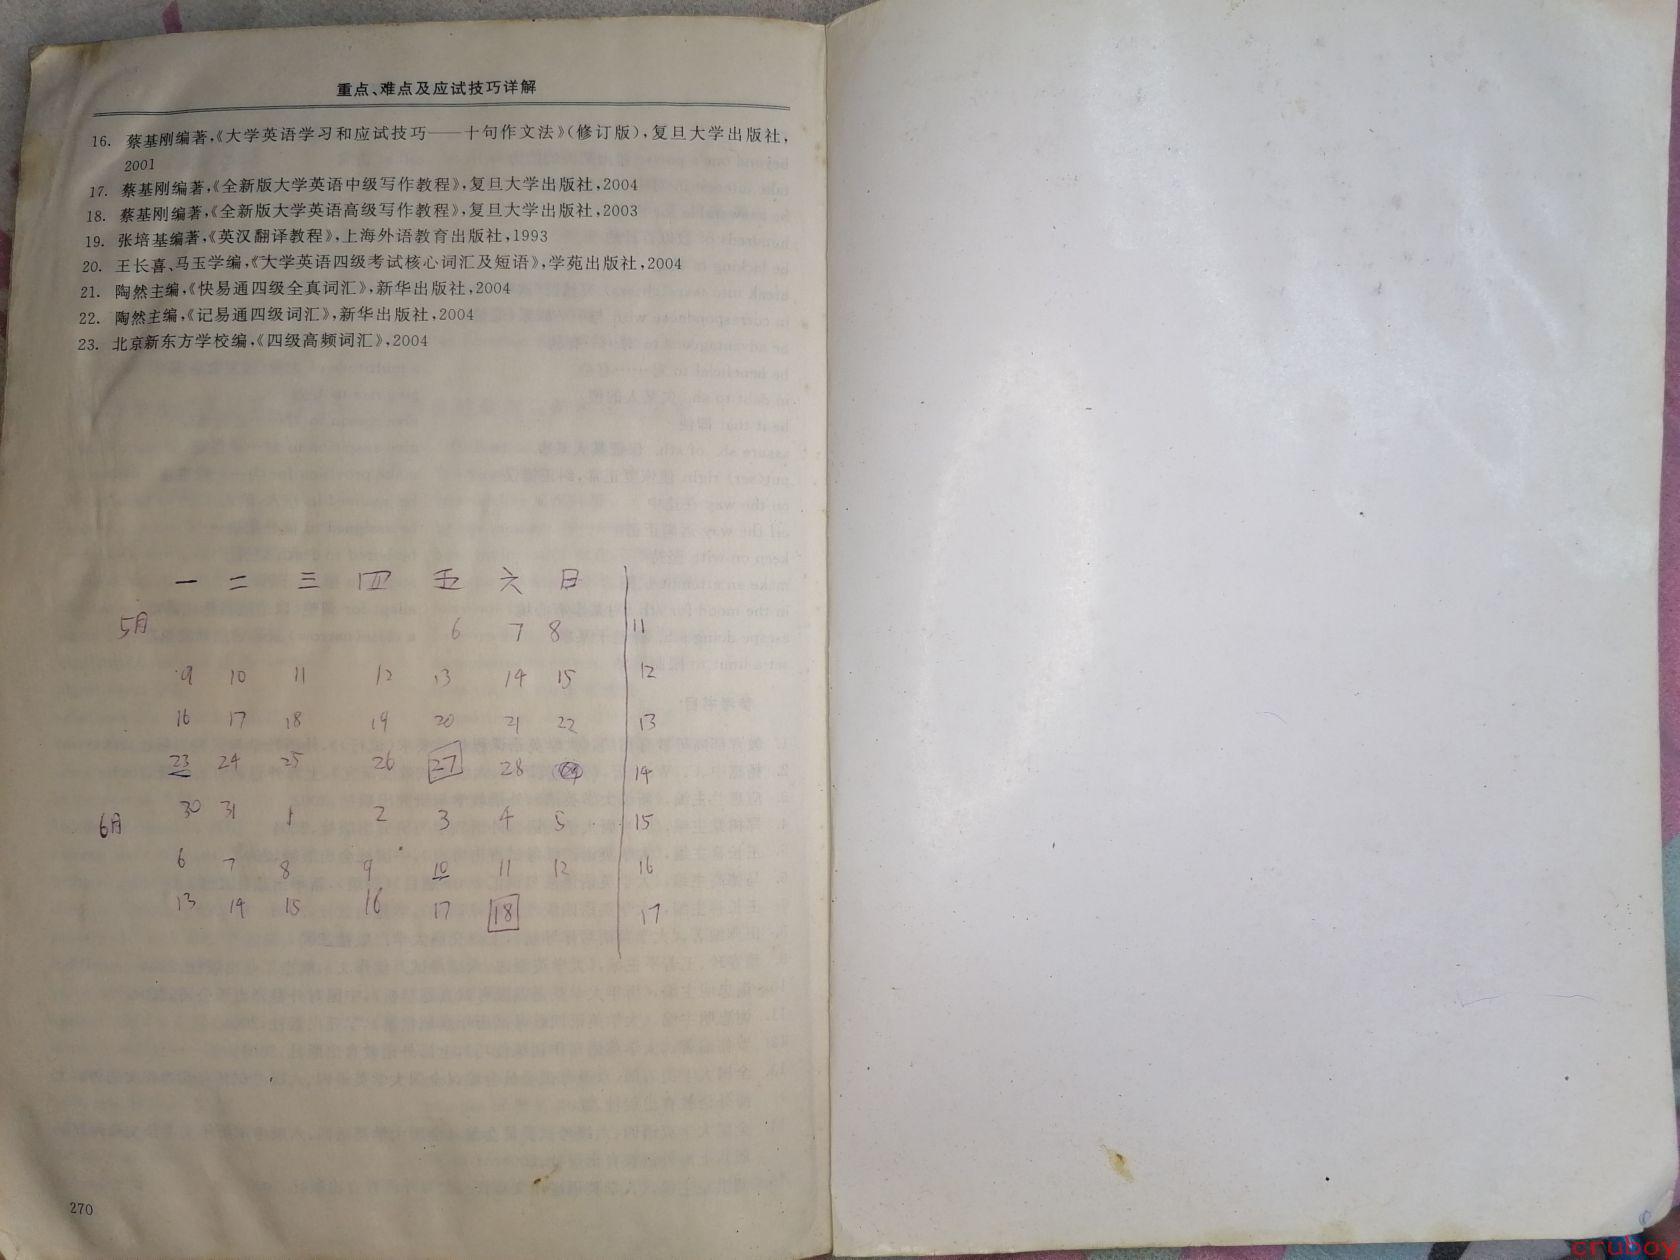 重点、难点及应试技巧详解
16. 蔡基刚编著,《大学英语学习和应试技巧——十句作文法》(修订版),复旦大学出版社,
2001
17. 蔡基刚编著,《全新版大学英语中级写作教程》,复旦大学出版社,2004
18. 蔡基刚编著,《全新版大学英语高级写作教程》,复旦大学出版社,2003
19. 张培基编著,《英汉翻译教程》,上海外语教育出版社,1993
20. 王长喜、马玉学编,《大学英语四级考试核心词汇及短语》,学苑出版社,2004
21. 陶然主编,《快易通四级全真词汇》,新华出版社,2004
22. 陶然主编,《记易通四级词汇》,新华出版社,2004
23. 北京新东方学校编,《四级高频词汇》,2004
一 二 三 四 五 六 日
5月 6 7 8 11
9 10 11 12 13 14 15 12
16 17 18 19 20 21 22 13
23 24 25 26 27 28 29 14
30 31 1 2 3 4 5 15
6月
6 7 8 9 10 11 12 16
13 14 15 16 17 18 17
270
cruboy